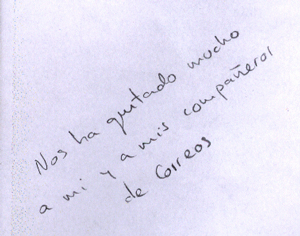 Nos ha gustado mucho
a mi y a mis compañeros
de Correos